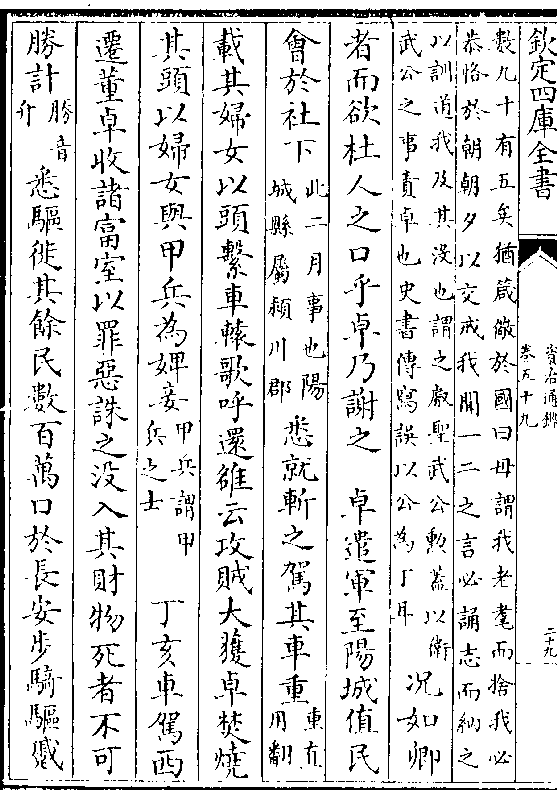 欽定四庫全書
資治通鑑
卷五十九
二十九
數九十有五矣猶箴儆於國曰毋謂我老耄而捨我必
恭恪於朝朝夕以交戒我聞一二之言必誦志而納之
以訓道我及其没也謂之叡聖武公勲蓋以衛
武公之事責卓也史書傳寫誤以公為丁耳
况如卿
者而欲杜人之口乎卓乃謝之　卓遣軍至陽城值民
會於社下
此二月事也陽
城縣屬頴川郡
悉就斬之駕其車重
重直
用翻
載其婦女以頭繫車轅歌呼還雒云攻賊大獲卓焚燒
其頭以婦女與甲兵為婢妾
甲兵謂甲
兵之士
丁亥車駕西
遷董卓收諸富室以罪惡誅之没入其財物死者不可
勝計
勝音
升
悉驅徙其餘民數百萬口於長安步騎驅蹙